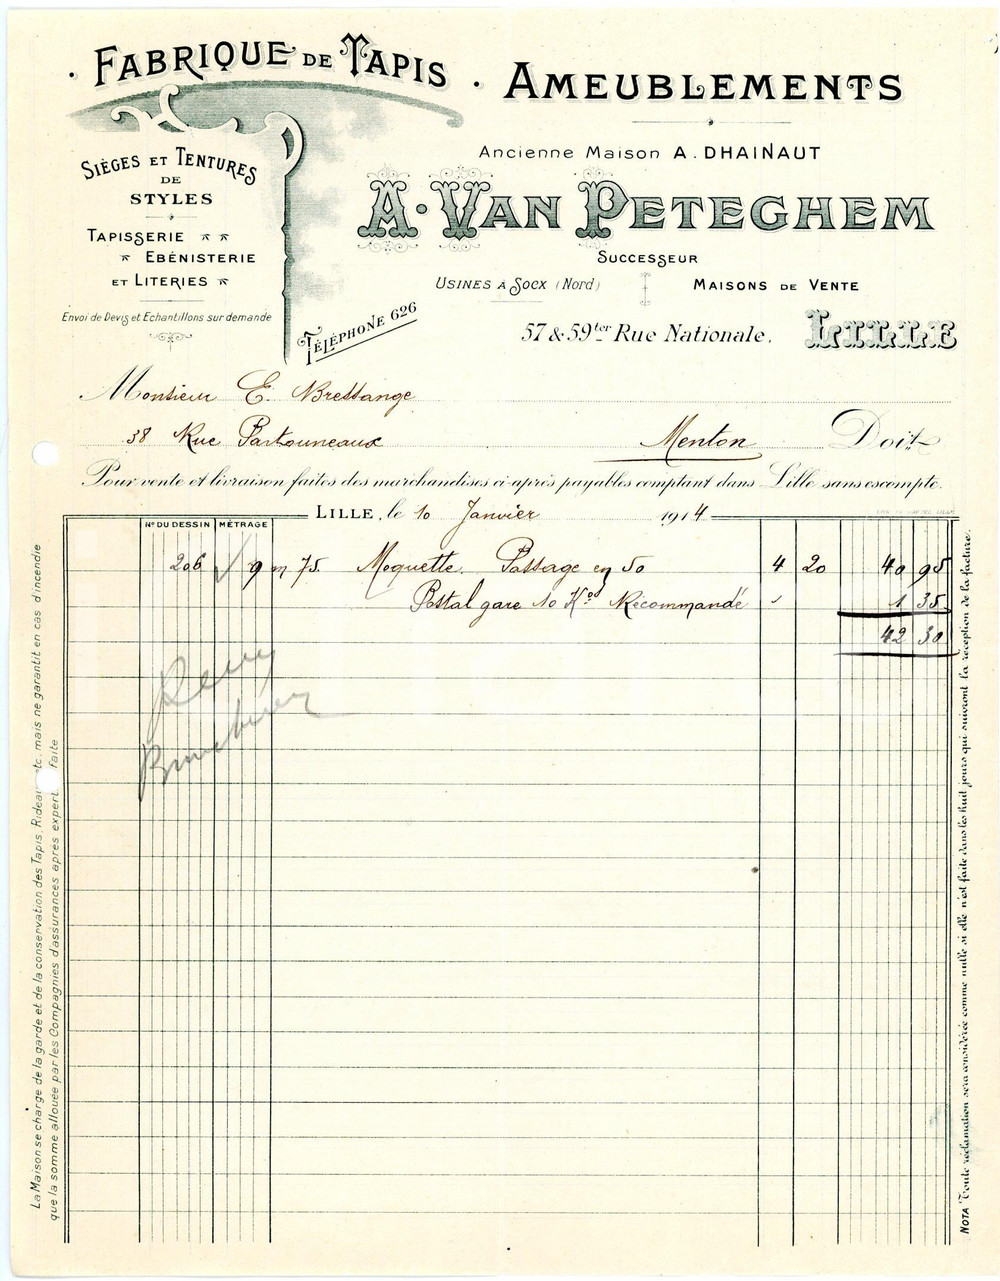 FABRIQUE DE TAPIS · AMEUBLEMENTS
SIÈGES ET TENTURES
DE
STYLES
TAPISSERIE
EBÉNISTERIE
ET LITERIES
Envoi de Devis et Echantillons sur demande
TÉLÉPHONE 626
Ancienne Maison A. DHAINAUT
A. VAN PETEGHEM
SUCCESSEUR
USINES À SOCX (Nord)
MAISONS DE VENTE
57 & 59ter Rue Nationale. LILLE
Monsieur E. Bressange
38 Rue Partouneaux Menton Doit
Pour vente et livraison faites des marchandises ci-après payables comptant dans Lille sans escompte.
LILLE, le 10 Janvier 1914
No DU DESSIN MÉTRAGE
206 9 m 75. Moquette. Passage en 50 4 20 40 95
Postal gare 10 Kos Recommandé 1 35
42 30
La Maison se charge de la garde et de la conservation des Tapis, Rideaux etc. mais ne garantit en cas d'incendie
que la somme allouée par les Compagnies d'assurances après expertise faite
NOTA Toute réclamation sera considérée comme nulle si elle n'est faite dans les huit jours qui suivront la réception de la facture.